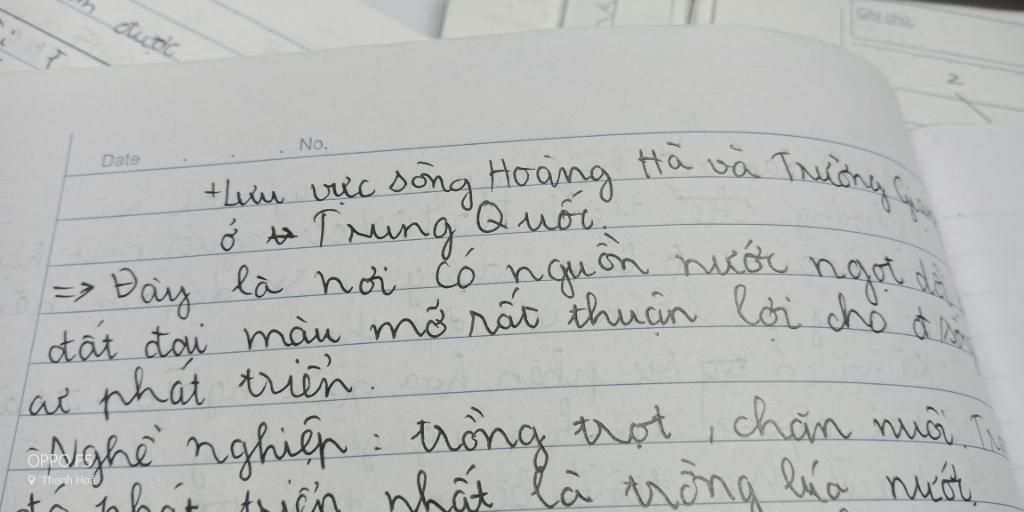 được
Ghi chú:
2
Date . . . No.
+Lưu vực sông Hoàng Hà và Trường
ở Trung Quốc.
=> Đây là nơi có nguồn nước ngọt
đất đai màu mỡ rất thuận lợi cho
phát triển.
- Nghề nghiệp: trồng trọt, chăn nuôi.
phát triển nhất là trồng lúa nước,
OPPO F5
Thanh Hoá